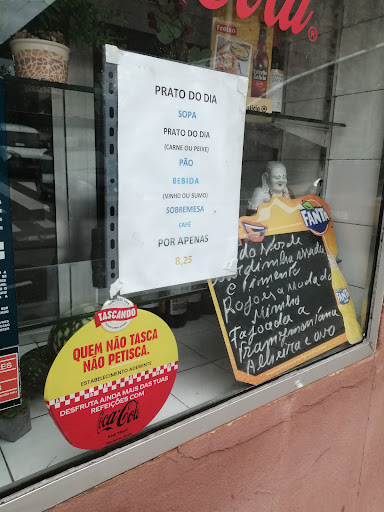 Cola®
Freixo
Estrella
Galicia
PRATO DO DIA
SOPA
PRATO DO DIA
(CARNE OU PEIXE)
PÃO
BEBIDA
(VINHO OU SUMO)
SOBREMESA
CAFÉ
POR APENAS
8,25
FANTA
de
e Pimento
Rojões a moda do
Minho
Fajoada a
Transmontana
Alheira c ovo
FANTA
TASCANDO
QUEM NÃO TASCA
NÃO PETISCA.
ESTABELECIMENTO ADERENTE
DESFRUTA AINDA MAIS DAS TUAS
REFEIÇÕES COM
Coca-Cola